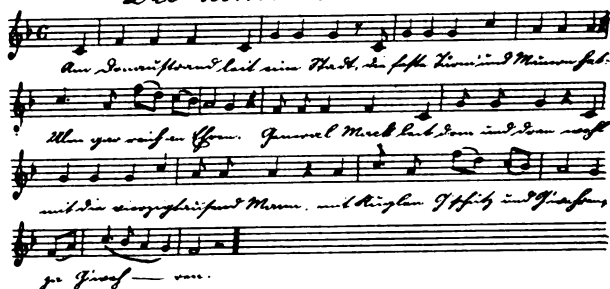 Am Donaustrand leit eine Stadt, die feste Türm und Mauren hat.
Ulm gar reich an Ehren. General Mack leit dom und dran wohl
mit die vierzigtausend Mann, mit Kuglen Gschütz und Gwehren,
zu Gweh — ren.